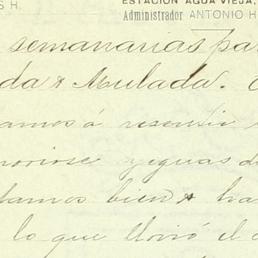 S H.
ESTACIÓN AGUA VIEJA,
Administrador ANTONIO H
semanarias pa
da & Mulada.
amos á reservir
y eguas d
tamos bien & ha
lo que llovió el